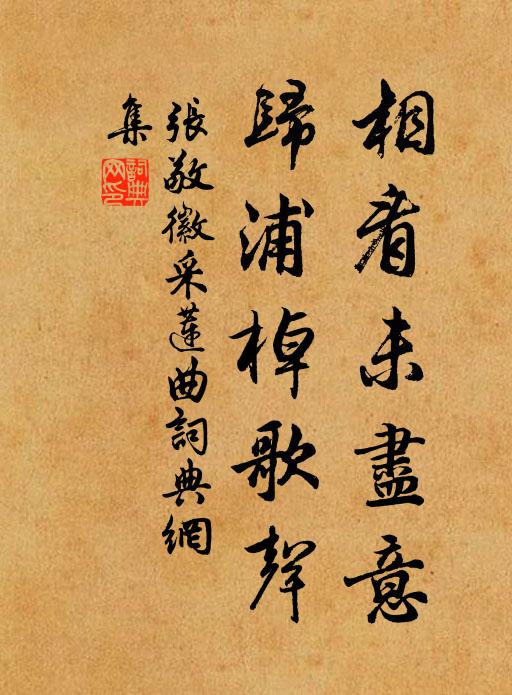 相看未盡意
歸浦棹歌聲
張敬徽采蓮曲詞典網
集
詞典
网印